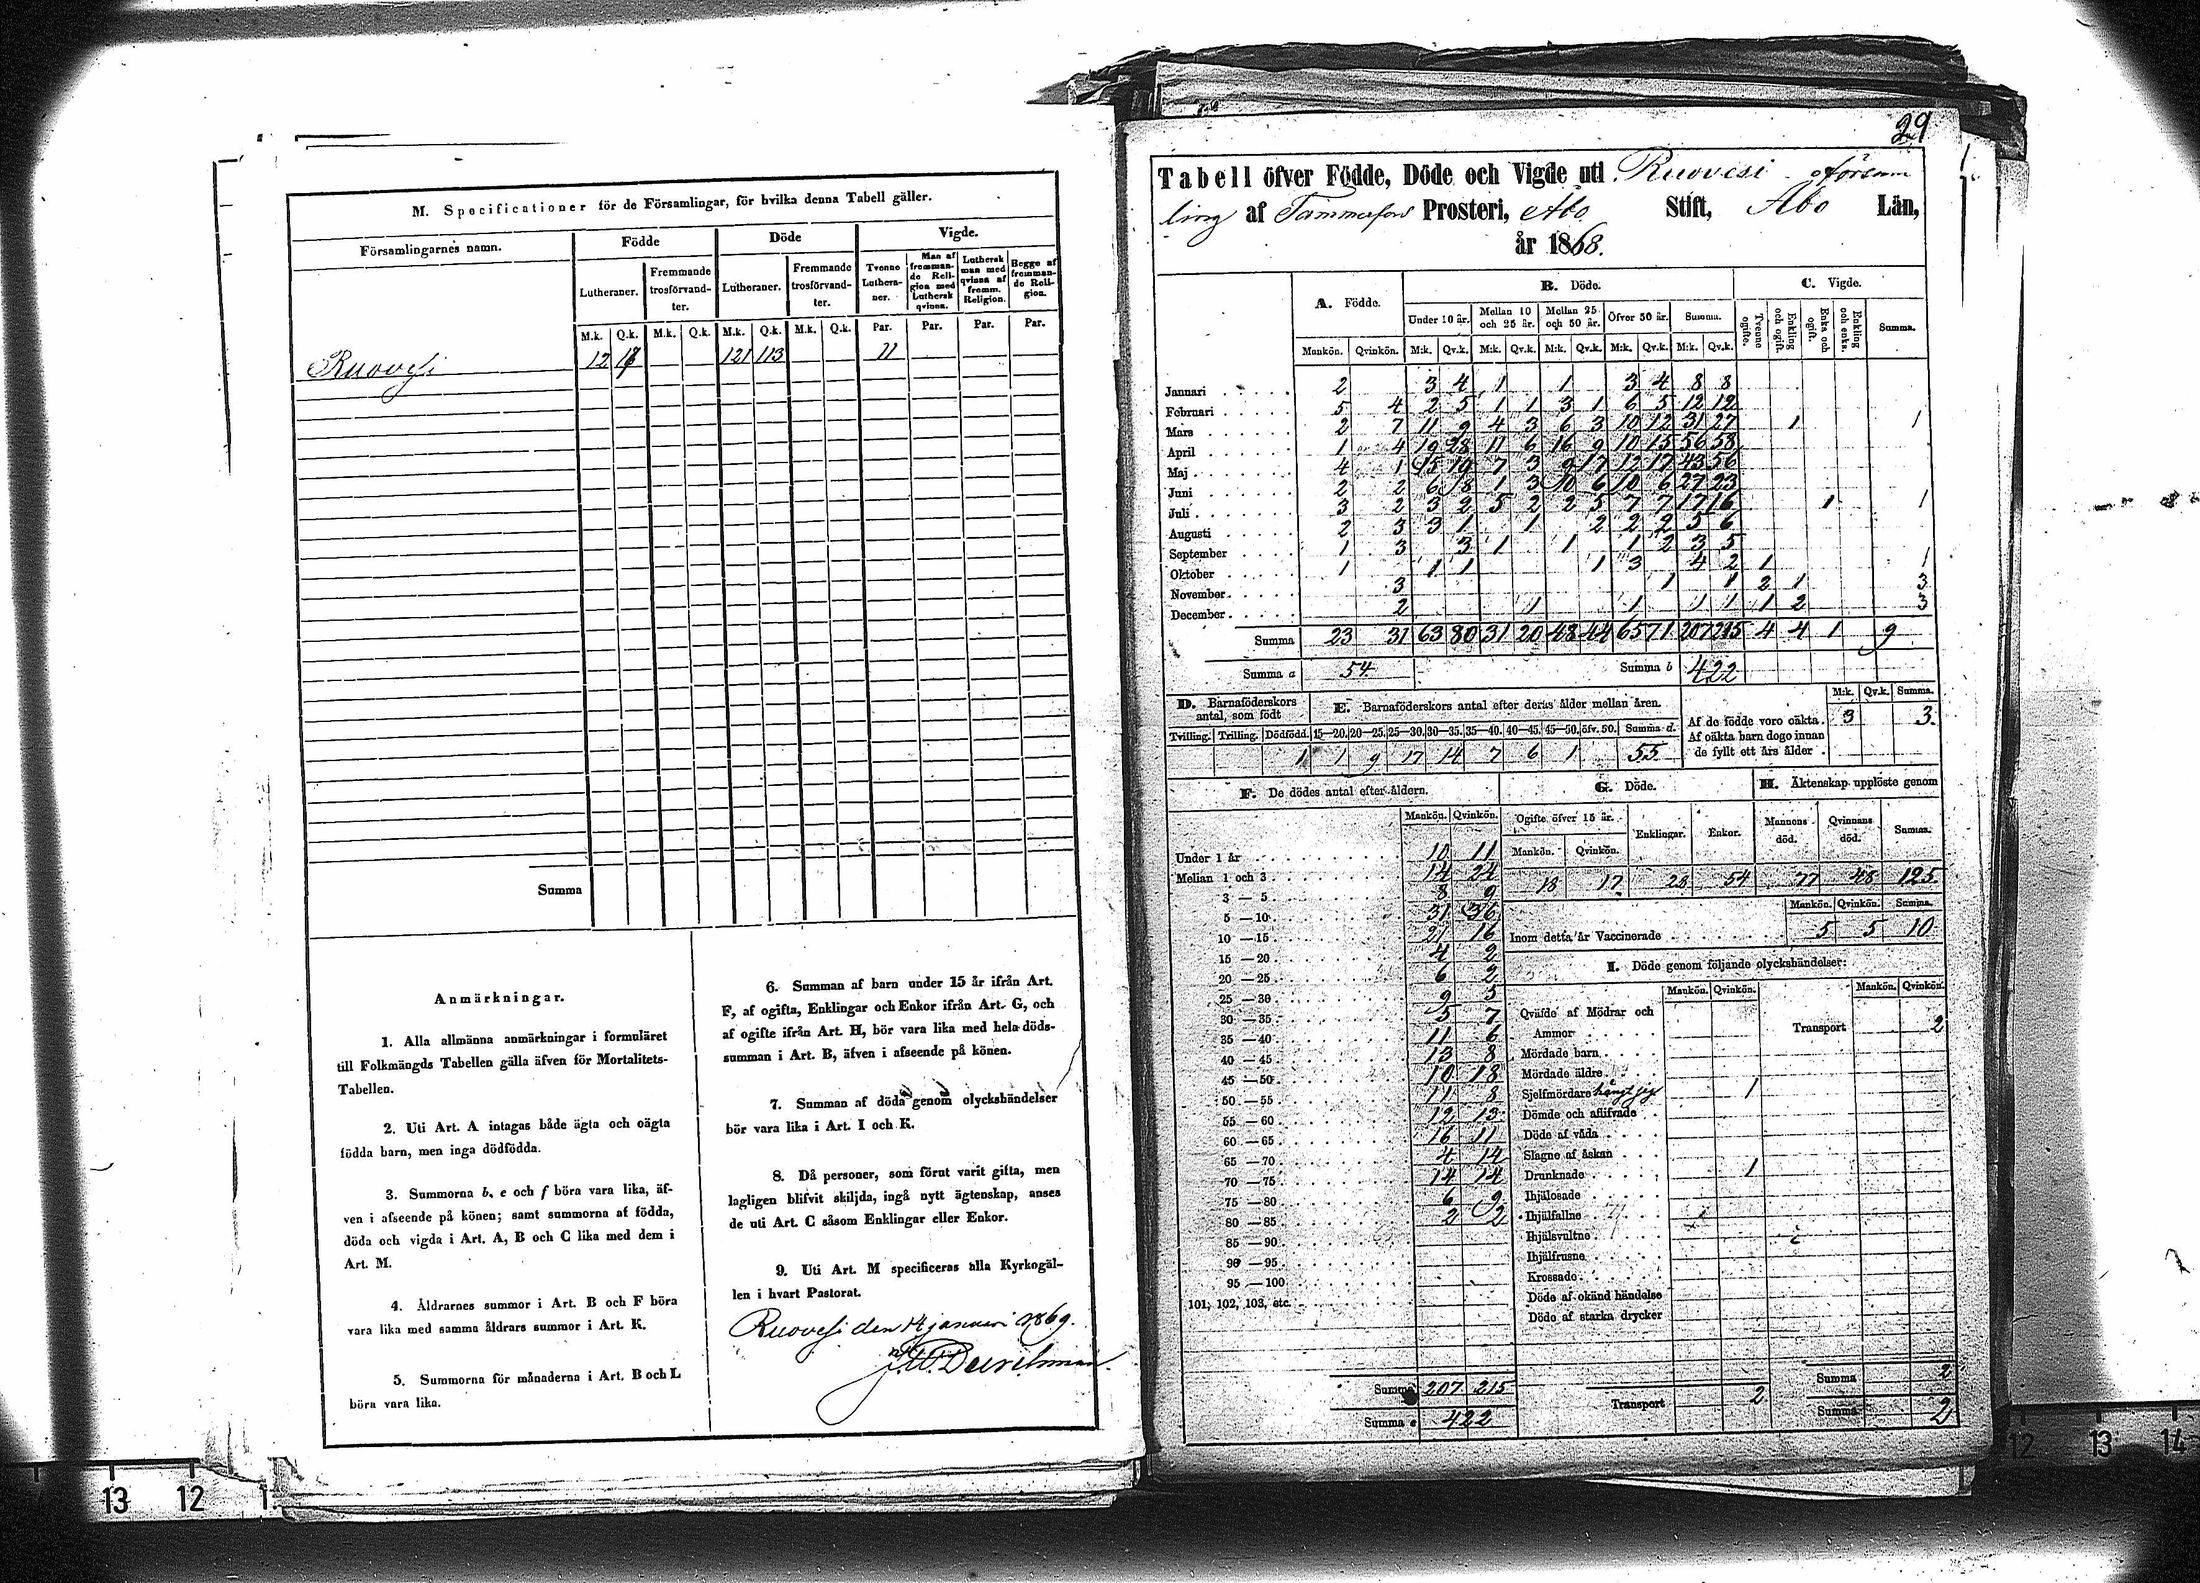 M. Specificationer för de Församlingar, för hvilka denna Tabell gäller.
Församlingarnes namn. Födde Döde Vigde.
Lutheraner. Fremmande trosförvandter. Lutheraner. Fremmande trosförvandter. Tvenne Lutheraner. Man af fremmande Religion med Luthersk qvinna. Luthersk man med qvinna af fremm. Religion. Begge af fremmande Religion.
M.k. Q.k. M.k. Q.k. M.k. Q.k. M.k. Q.k. Par. Par. Par. Par.
Ruovesi 12 121 113 11
Summa
Anmärkningar.
1. Alla allmänna anmärkningar i formuläret
till Folkmängds Tabellen gälla äfven för Mortalitets-
Tabellen.
2. Uti Art. A intagas både ägta och oägta
födda barn, men inga dödfödda.
3. Summorna b, e och f böra vara lika, äf-
ven i afseende på könen; samt summorna af födda,
döda och vigda i Art. A, B och C lika med dem i
Art. M.
4. Åldrarnes summor i Art. B och F böra
vara lika med samma åldrars summor i Art. K.
5. Summorna för månaderna i Art. B och L
böra vara lika.
6. Summan af barn under 15 år ifrån Art.
F, af ogifta, Enklingar och Enkor ifrån Art. G, och
af ogifte ifrån Art. H, bör vara lika med hela döds-
summan i Art. B, äfven i afseende på könen.
7. Summan af döda genom olyckshändelser
bör vara lika i Art. I och K.
8. Då personer, som förut varit gifta, men
lagligen blifvit skiljda, ingå nytt ägtenskap, anses
de uti Art. C såsom Enklingar eller Enkor.
9. Uti Art. M specificeras alla Kyrkogäl-
len i hvart Pastorat.
Ruovesi den 14 januari 1869.
29
Tabell öfver Födde, Döde och Vigde uti Ruovesi försam
ling af Tammerfors Prosteri, Åbo Stift, Åbo Län,
år 1868.
A. Födde. B. Döde. C. Vigde.
Under 10 år. Mellan 10 och 25 år. Mellan 25 och 50 år. Öfver 50 år. Summa. Tvenne ogifte. Enkling och ogift. Enka och ogift. Enkling och enka. Summa.
Mankön. Qvinkön. M:k. Qv.k. M:k. Qv.k. M:k. Qv.k. M:k. Qv.k. M:k. Qv.k.
Januari 2 3 4 1 1 3 4 8 8
Februari 5 4 2 5 1 1 3 1 6 5 12 12
Mars 2 7 11 9 4 3 6 3 10 12 31 27 1 1
April 1 4 19 28 11 6 16 9 10 15 56 58
Maj 4 1 15 19 7 3 9 17 12 17 43 56
Juni 2 2 6 8 1 3 10 6 10 6 27 23
Juli 3 2 3 2 5 2 2 5 7 7 17 16 1 1
Augusti 2 3 3 1 1 2 2 2 5 6
September 1 3 3 1 1 1 2 3 5
Oktober 1 1 1 1 3 4 2 1 1
November 3 1 1 2 1 3
December 2 1 1 1 1 1 2 3
Summa 23 31 63 80 31 20 48 44 65 71 207 215 4 4 1 9
Summa a 54 Summa b 422
D. Barnaföderskors antal, som födt E. Barnaföderskors antal efter deras ålder mellan åren. M:k. Qv.k. Summa.
Tvilling. Trilling. Dödfödd. 15—20. 20—25. 25—30. 30—35. 35—40. 40—45. 45—50. öfv. 50. Summa d.
1 1 9 17 14 7 6 1 55
Af de födde voro oäkta. 3 3.
Af oäkta barn dogo innan
de fyllt ett års ålder
F. De dödes antal efter åldern. G. Döde. H. Äktenskap upplöste genom
Mankön. Qvinkön. Ogifte öfver 15 år. Enklingar. Enkor. Mannens död. Qvinnans död. Summa.
Mankön. Qvinkön.
18 17 28 54 77 48 125
Under 1 år 10 11
Mellan 1 och 3 14 24
3 — 5 8 9
5 — 10 31 36
10 — 15 21 16
15 — 20 4 2
20 — 25 6 2
25 — 30 9 5
30 — 35 5 7
35 — 40 11 6
40 — 45 13 8
45 — 50 10 18
50 — 55 11 8
55 — 60 12 13
60 — 65 16 11
65 — 70 4 14
70 — 75 14 14
75 — 80 6 9
80 — 85 2 2
85 — 90
90 — 95
95 — 100
101, 102, 103, etc.
Summa 207 215
Summa e 422
Mankön. Qvinkön. Summa.
Inom detta år Vaccinerade 5 5 10
I. Döde genom följande olyckshändelser:
Mankön. Qvinkön. Mankön. Qvinkön.
Qväfde af Mödrar och
Ammor
Mördade barn
Mördade äldre
Sjelfmördare hängt sig 1
Dömde och aflifvade
Döde af våda
Slagne af åskan
Drunknade 1
Ihjälosade
Ihjälfallne
Ihjälsvultne
Ihjälfrusne
Krossade
Döde af okänd händelse
Döde af starka drycker
Transport 2
Transport 2
Summa 2
Summa 2